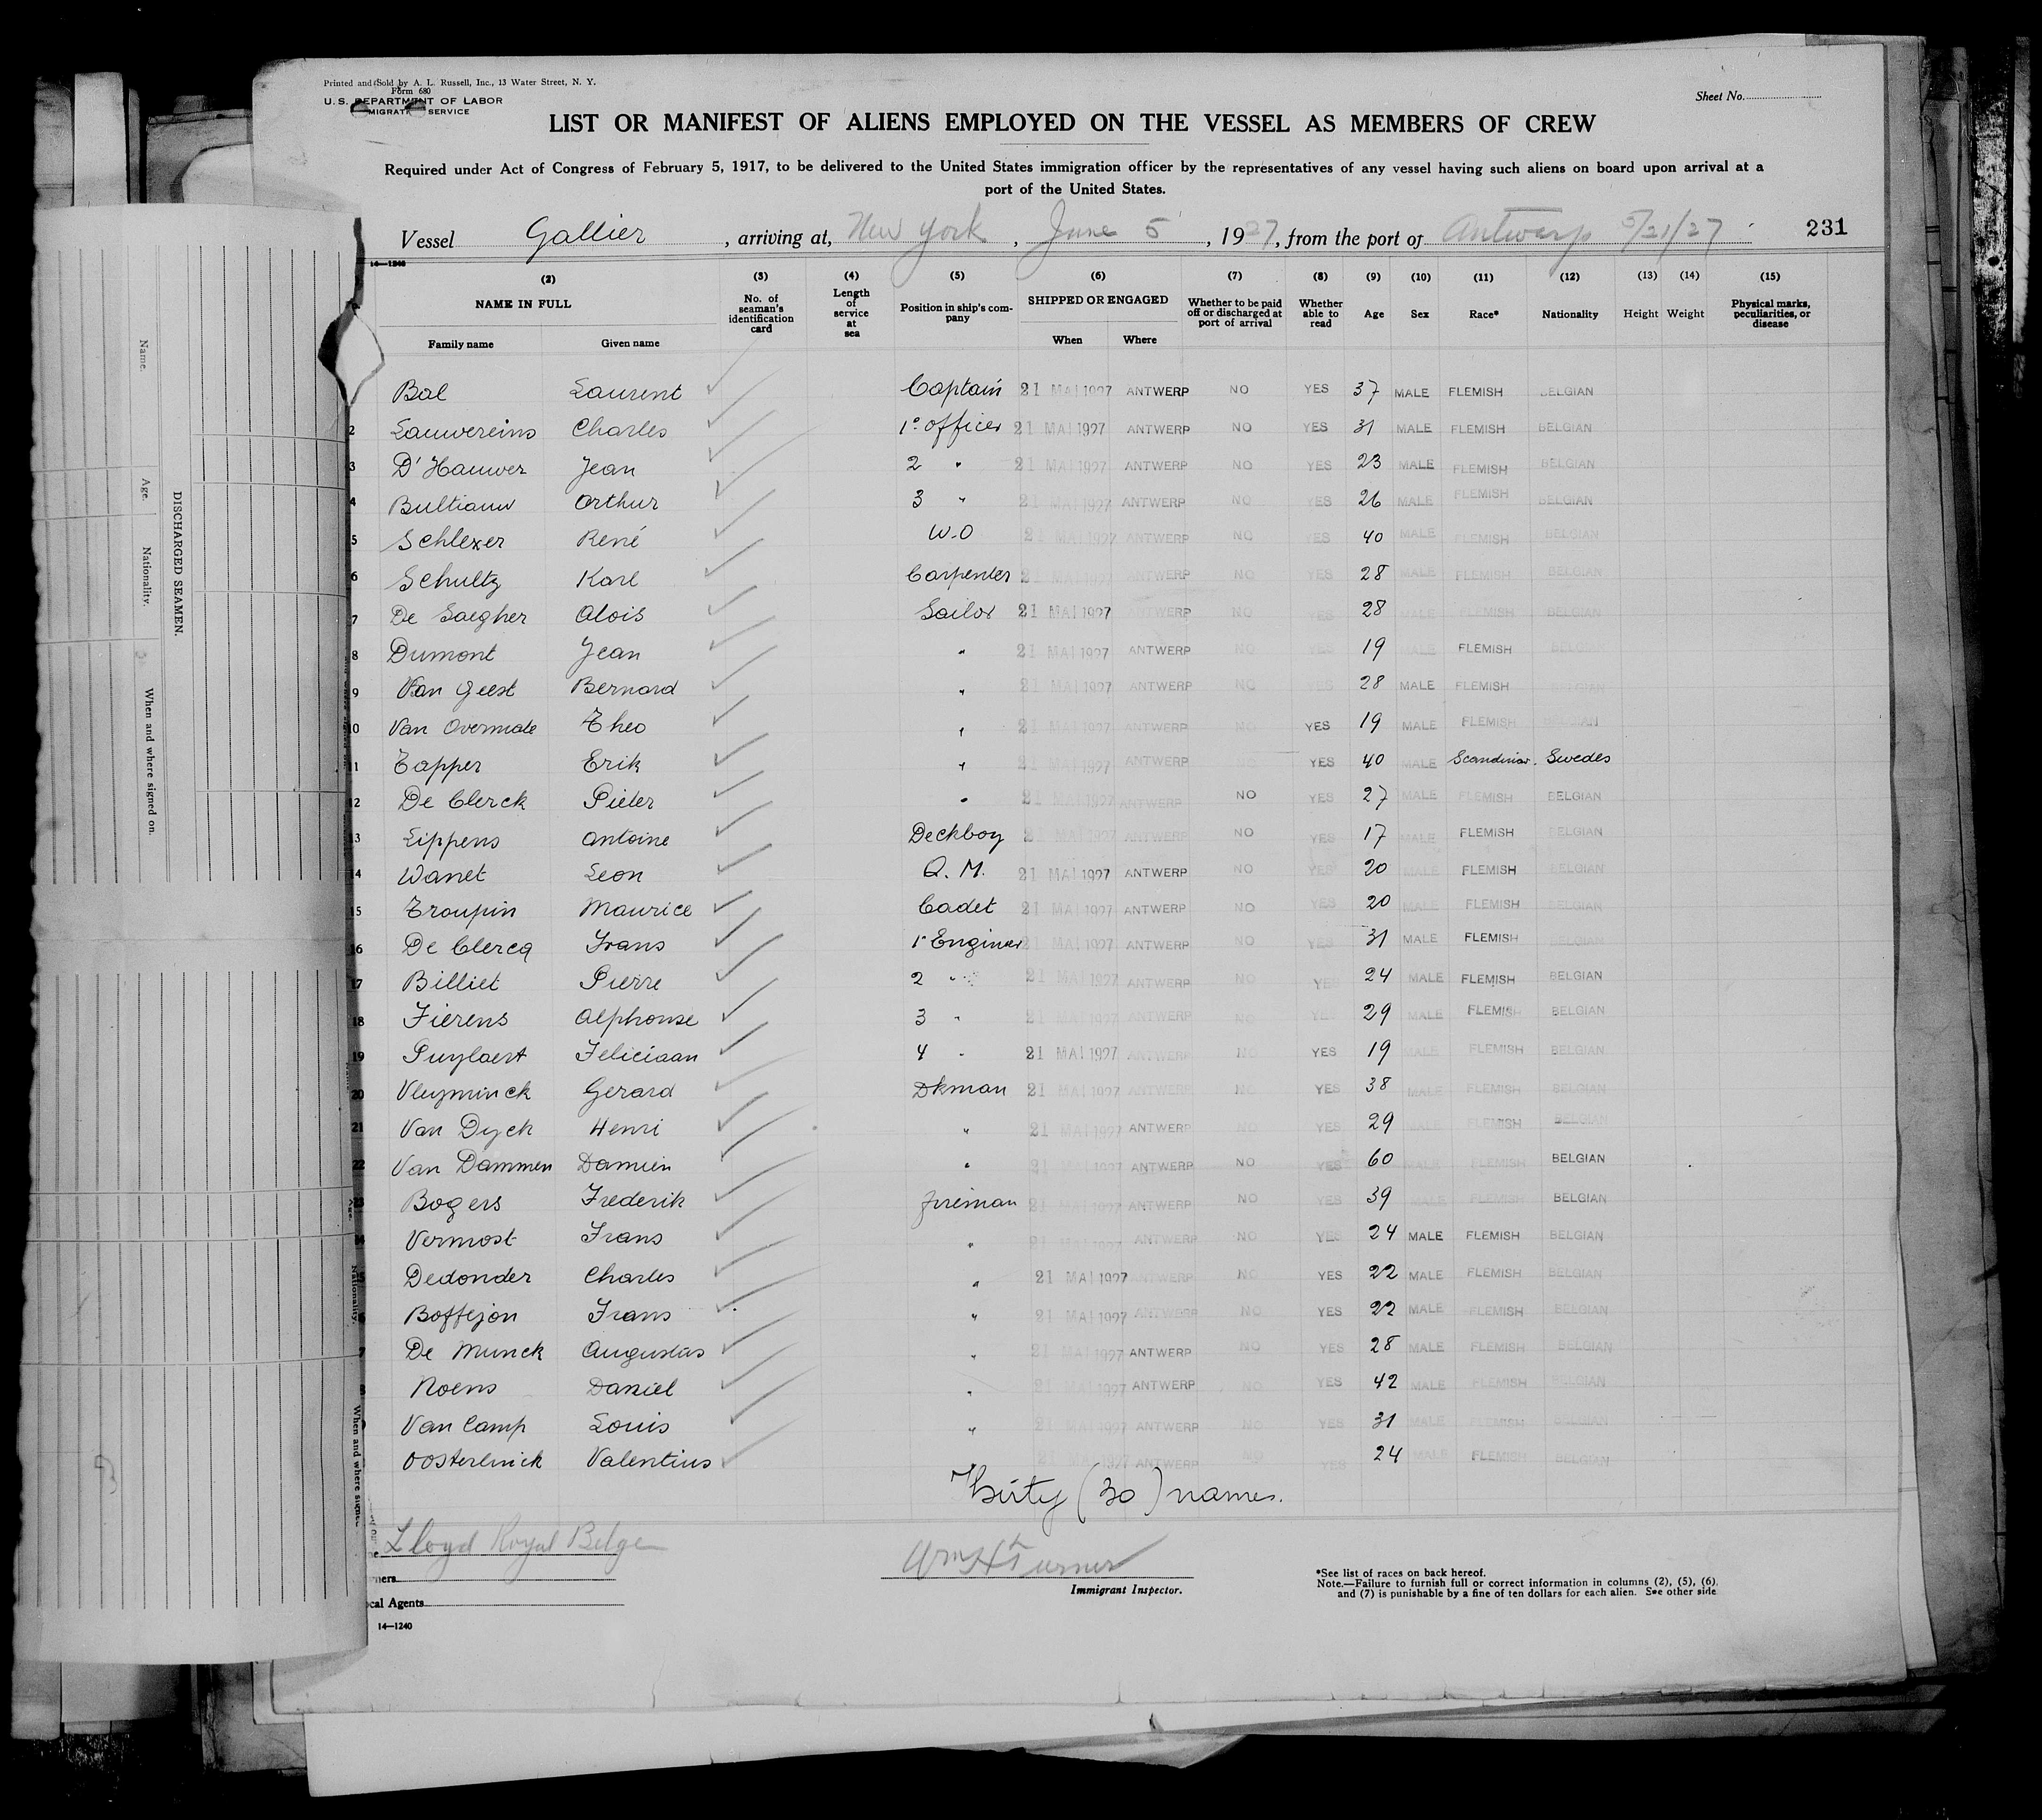 Printed and Sold by A. L. Russell, Inc., 13 Water Street, N. Y.
Form 680
U. S. DEPARTMENT OF LABOR
IMMIGRATION SERVICE
Sheet No.
LIST OR MANIFEST OF ALIENS EMPLOYED ON THE VESSEL AS MEMBERS OF CREW
Required under Act of Congress of February 5, 1917, to be delivered to the United States immigration officer by the representatives of any vessel having such aliens on board upon arrival at a
port of the United States.
Vessel Gallier, arriving at, New York, June 5, 1927, from the port of Antwerp 5/21/27 231
14—1240
(2) (3) (4) (5) (6) (7) (8) (9) (10) (11) (12) (13) (14) (15)
NAME IN FULL Family name Given name No. of seaman's identification card Length of service at sea Position in ship's company SHIPPED OR ENGAGED When Where Whether to be paid off or discharged at port of arrival Whether able to read Age Sex Race* Nationality Height Weight Physical marks, peculiarities, or disease
Bal Laurent Captain 21 MAI 1927 ANTWERP NO YES 37 MALE FLEMISH BELGIAN
2 Lauwereins Charles 1° officer 21 MAI 1927 ANTWERP NO YES 31 MALE FLEMISH BELGIAN
3 D'Hauwer Jean 2 " 21 MAI 1927 ANTWERP NO YES 23 MALE FLEMISH BELGIAN
4 Bultiauw Arthur 3 " 21 MAI 1927 ANTWERP NO YES 26 MALE FLEMISH BELGIAN
5 Schlexer René W.O 21 MAI 1927 ANTWERP NO YES 40 MALE FLEMISH BELGIAN
6 Schultz Karl Carpenter 21 MAI 1927 ANTWERP NO YES 28 MALE FLEMISH BELGIAN
7 De Saegher Alois Sailor 21 MAI 1927 ANTWERP NO YES 28 FLEMISH BELGIAN
8 Dumont Jean " 21 MAI 1927 ANTWERP NO YES 19 MALE FLEMISH BELGIAN
9 Van Geest Bernard " 21 MAI 1927 ANTWERP NO YES 28 MALE FLEMISH BELGIAN
10 Van Overmate Theo " 21 MAI 1927 ANTWERP NO YES 19 MALE FLEMISH BELGIAN
11 Tapper Erik " 21 MAI 1927 ANTWERP NO YES 40 MALE Scandinav. Swedes
12 De Clerck Pieter " 21 MAI 1927 ANTWERP NO YES 27 MALE FLEMISH BELGIAN
13 Lippens Antoine Deckboy 21 MAI 1927 ANTWERP NO YES 17 MALE FLEMISH BELGIAN
14 Wanet Leon Q. M. 21 MAI 1927 ANTWERP NO YES 20 MALE FLEMISH BELGIAN
15 Troupin Maurice Cadet 21 MAI 1927 ANTWERP NO YES 20 MALE FLEMISH BELGIAN
16 De Clercq Frans 1° Engineer 21 MAI 1927 ANTWERP NO YES 31 MALE FLEMISH BELGIAN
17 Billiet Pierre 2 " 21 MAI 1927 ANTWERP NO YES 24 MALE FLEMISH BELGIAN
18 Fierens Alphonse 3 " 21 MAI 1927 ANTWERP NO YES 29 MALE FLEMISH BELGIAN
19 Puylaert Feliciaan 4 " 21 MAI 1927 ANTWERP NO YES 19 MALE FLEMISH BELGIAN
20 Vleyminck Gerard Dkman 21 MAI 1927 ANTWERP NO YES 38 MALE FLEMISH BELGIAN
21 Van Dyck Henri " 21 MAI 1927 ANTWERP NO YES 29 MALE FLEMISH BELGIAN
22 Van Dammen Damien " 21 MAI 1927 ANTWERP NO YES 60 MALE FLEMISH BELGIAN
23 Bogers Frederik fireman 21 MAI 1927 ANTWERP NO YES 39 MALE FLEMISH BELGIAN
Vermost Frans " 21 MAI 1927 ANTWERP NO YES 24 MALE FLEMISH BELGIAN
Dedonder Charles " 21 MAI 1927 ANTWERP NO YES 22 MALE FLEMISH BELGIAN
Boffejon Frans " 21 MAI 1927 ANTWERP NO YES 22 MALE FLEMISH BELGIAN
De Munck Augustus " 21 MAI 1927 ANTWERP NO YES 28 MALE FLEMISH BELGIAN
Noens Daniel " 21 MAI 1927 ANTWERP NO YES 42 MALE FLEMISH BELGIAN
Van Camp Louis " 21 MAI 1927 ANTWERP NO YES 31 MALE FLEMISH BELGIAN
Oosterlinck Valentius 21 MAI 1927 ANTWERP NO YES 24 MALE FLEMISH BELGIAN
Thirty (30) names.
Lloyd Royal Belge
Wm H Turner
Immigrant Inspector.
Local Agents
14—1240
*See list of races on back hereof.
Note.—Failure to furnish full or correct information in columns (2), (5), (6),
and (7) is punishable by a fine of ten dollars for each alien. See other side
Name.
Age.
Nationality.
When and where signed on.
DISCHARGED SEAMEN.
Nationality.
When and where signed